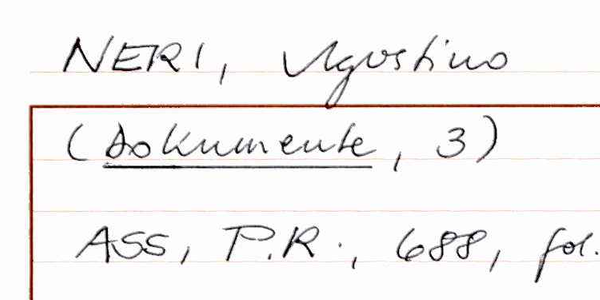 NERI, Agostino
(Dokumente, 3)
ASS, P.R., 688, fol.